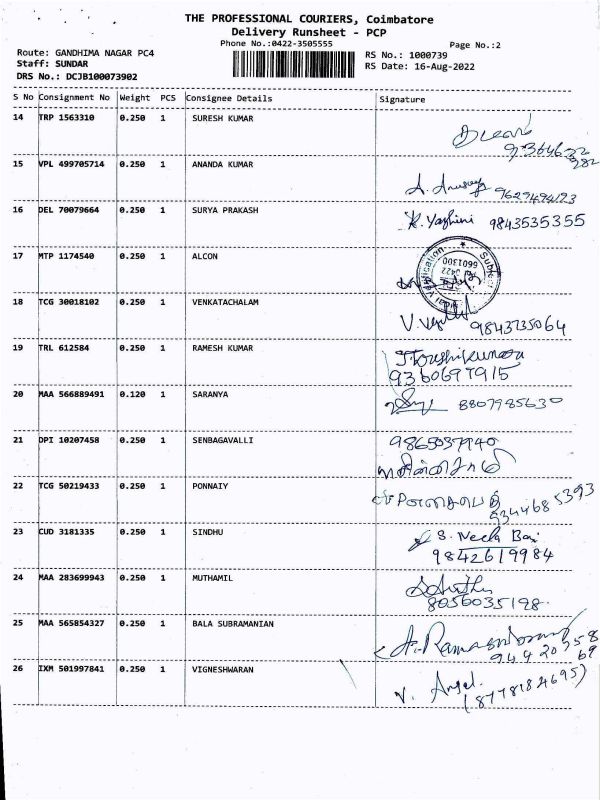 THE PROFESSIONAL COURIERS, Coimbatore
Delivery Runsheet - PCP
Phone No.:0422-3505555
Page No.:2
Route: GANDHIMA NAGAR PC4
RS No.: 1000739
Staff: SUNDAR
RS Date: 16-Aug-2022
DRS No.: DCJB100073902
S No Consignment No Weight PCS Consignee Details Signature
14 TRP 1563310 0.250 1 SURESH KUMAR
15 VPL 499705714 0.250 1 ANANDA KUMAR
9629494193
16 DEL 70079664 0.250 1 SURYA PRAKASH
K. Yazhini 9843535355
17 MTP 1174540 0.250 1 ALCON
18 TCG 30018102 0.250 1 VENKATACHALAM
9843735064
19 TRL 612584 0.250 1 RAMESH KUMAR
9360697915
20 MAA 566889491 0.120 1 SARANYA
8807985630
21 DPI 10207458 0.250 1 SENBAGAVALLI
9865037940
22 TCG 50219433 0.250 1 PONNAIY
9344685393
23 CUD 3181335 0.250 1 SINDHU
S. Neela Bai
9842619984
24 MAA 283699943 0.250 1 MUTHAMIL
8056035198
25 MAA 565854327 0.250 1 BALA SUBRAMANIAN
26 IXM 501997841 0.250 1 VIGNESHWARAN
V. Angel.
(8778184695)